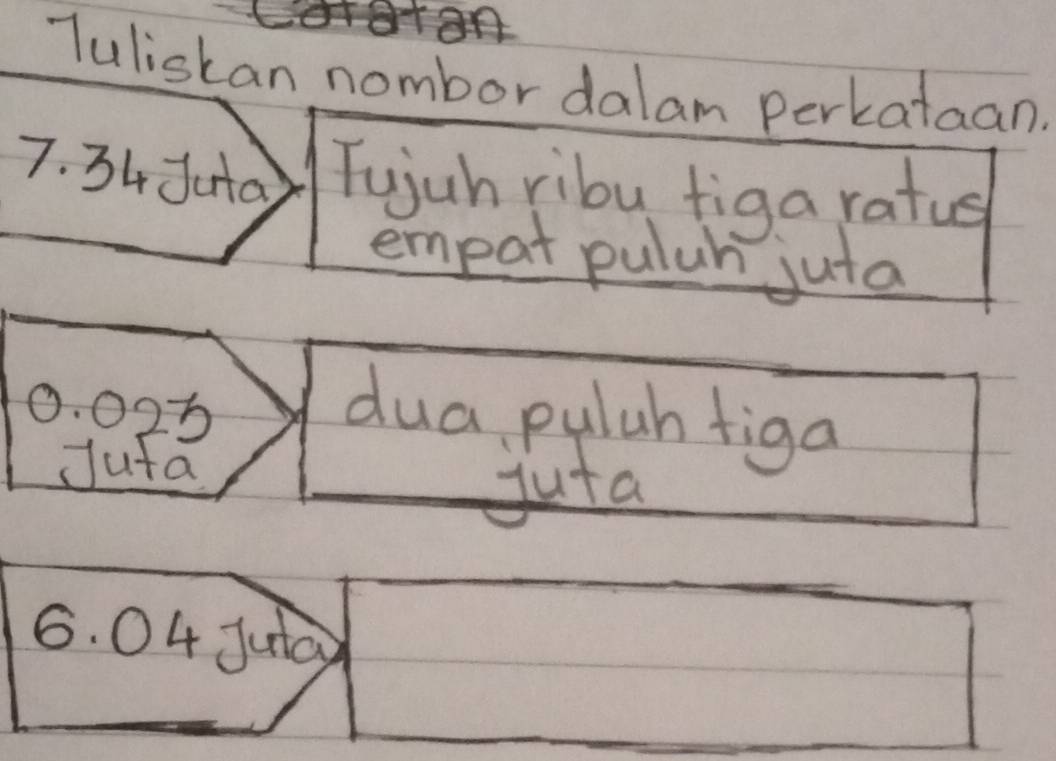 Catatan
Tuliskan nombor dalam perkataan.
7.34 Juta
Tujuh ribu tiga ratus
empat puluh juta
0.023
Juta
dua puluh tiga
juta
6.04 Juta